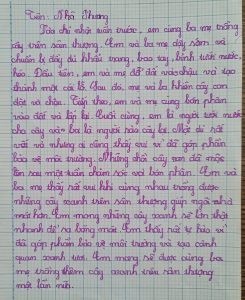 Tiên: Nhã Phương
Vào chủ nhật tuần trước, em cùng ba mẹ trồng
cây trên sân thượng. Em và ba mẹ dậy sớm và
chuẩn bị đầy đủ khẩu trang, bao tay, bình tưới nước,
héo. Đầu tiên, em và mẹ đổ đất vào chậu và tạo
thành một cái lỗ. Sau đó, mẹ và ba khiên cây con
đặt vào chậu. Tiếp theo, em và mẹ cùng bón phân
vào đất và lấp lại. Cuối cùng, em là người tưới nước
cho cây và ba là người rào cây lại. Mặc dù rất
vất vả nhưng ai cũng thấy vui vì đã góp phần
bảo vệ môi trường. Những chồi cây non đã mọc
lên sau một tuần chăm sóc và bón phân. Em và
ba mẹ thấy rất vui khi cùng nhau trồng được
những cây xanh trên sân thượng giúp ngôi nhà
mát hơn. Em mong những cây xanh sẽ lớn thật
nhanh để ra bóng mát. Em thấy rất tự hào vì
đã góp phần bảo vệ môi trường và tạo cảnh
quan xanh tươi. Em mong sẽ được cùng ba
mẹ trồng thêm cây xanh trên sân thượng
một lần nữa.